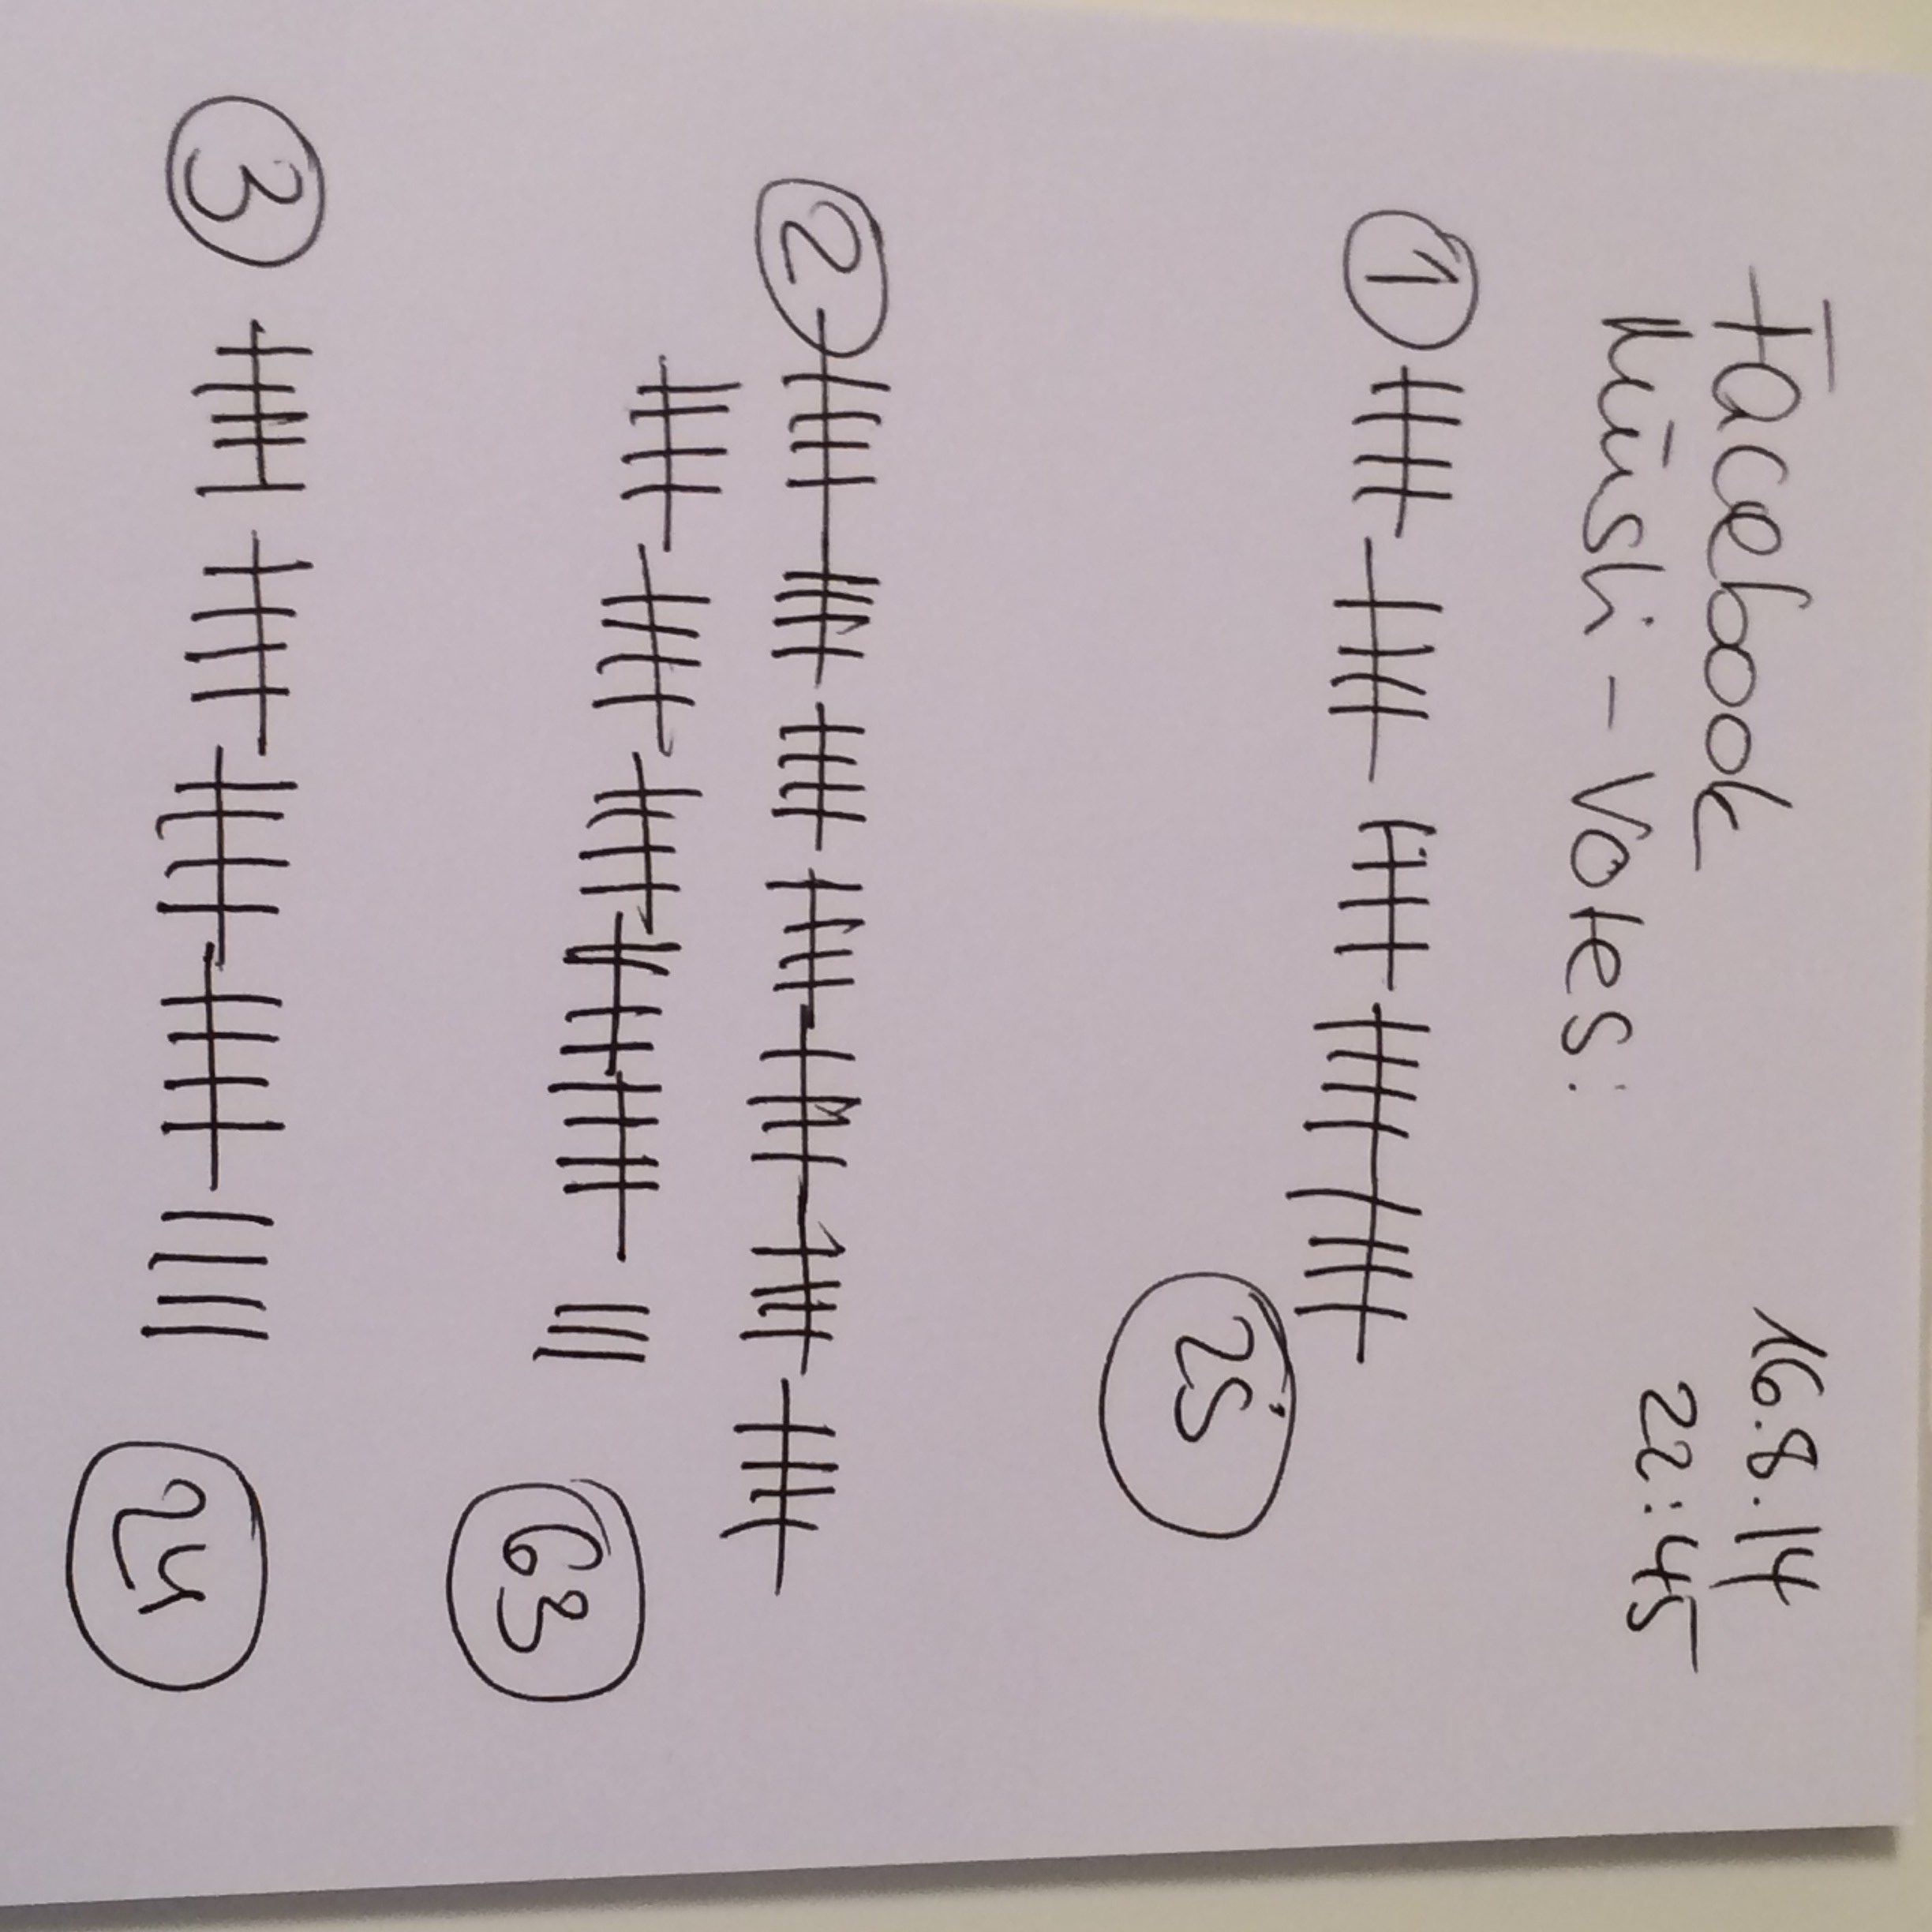 Facebook 16.8.14
Müsli - Votes: 22:45
1
25
2
63
3
24